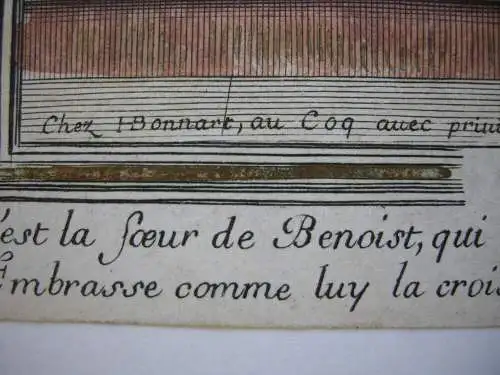 Chez H Bonnart, au Coq auec priui
'est la sœur de Benoist, qui
Embrasse comme luy la crois